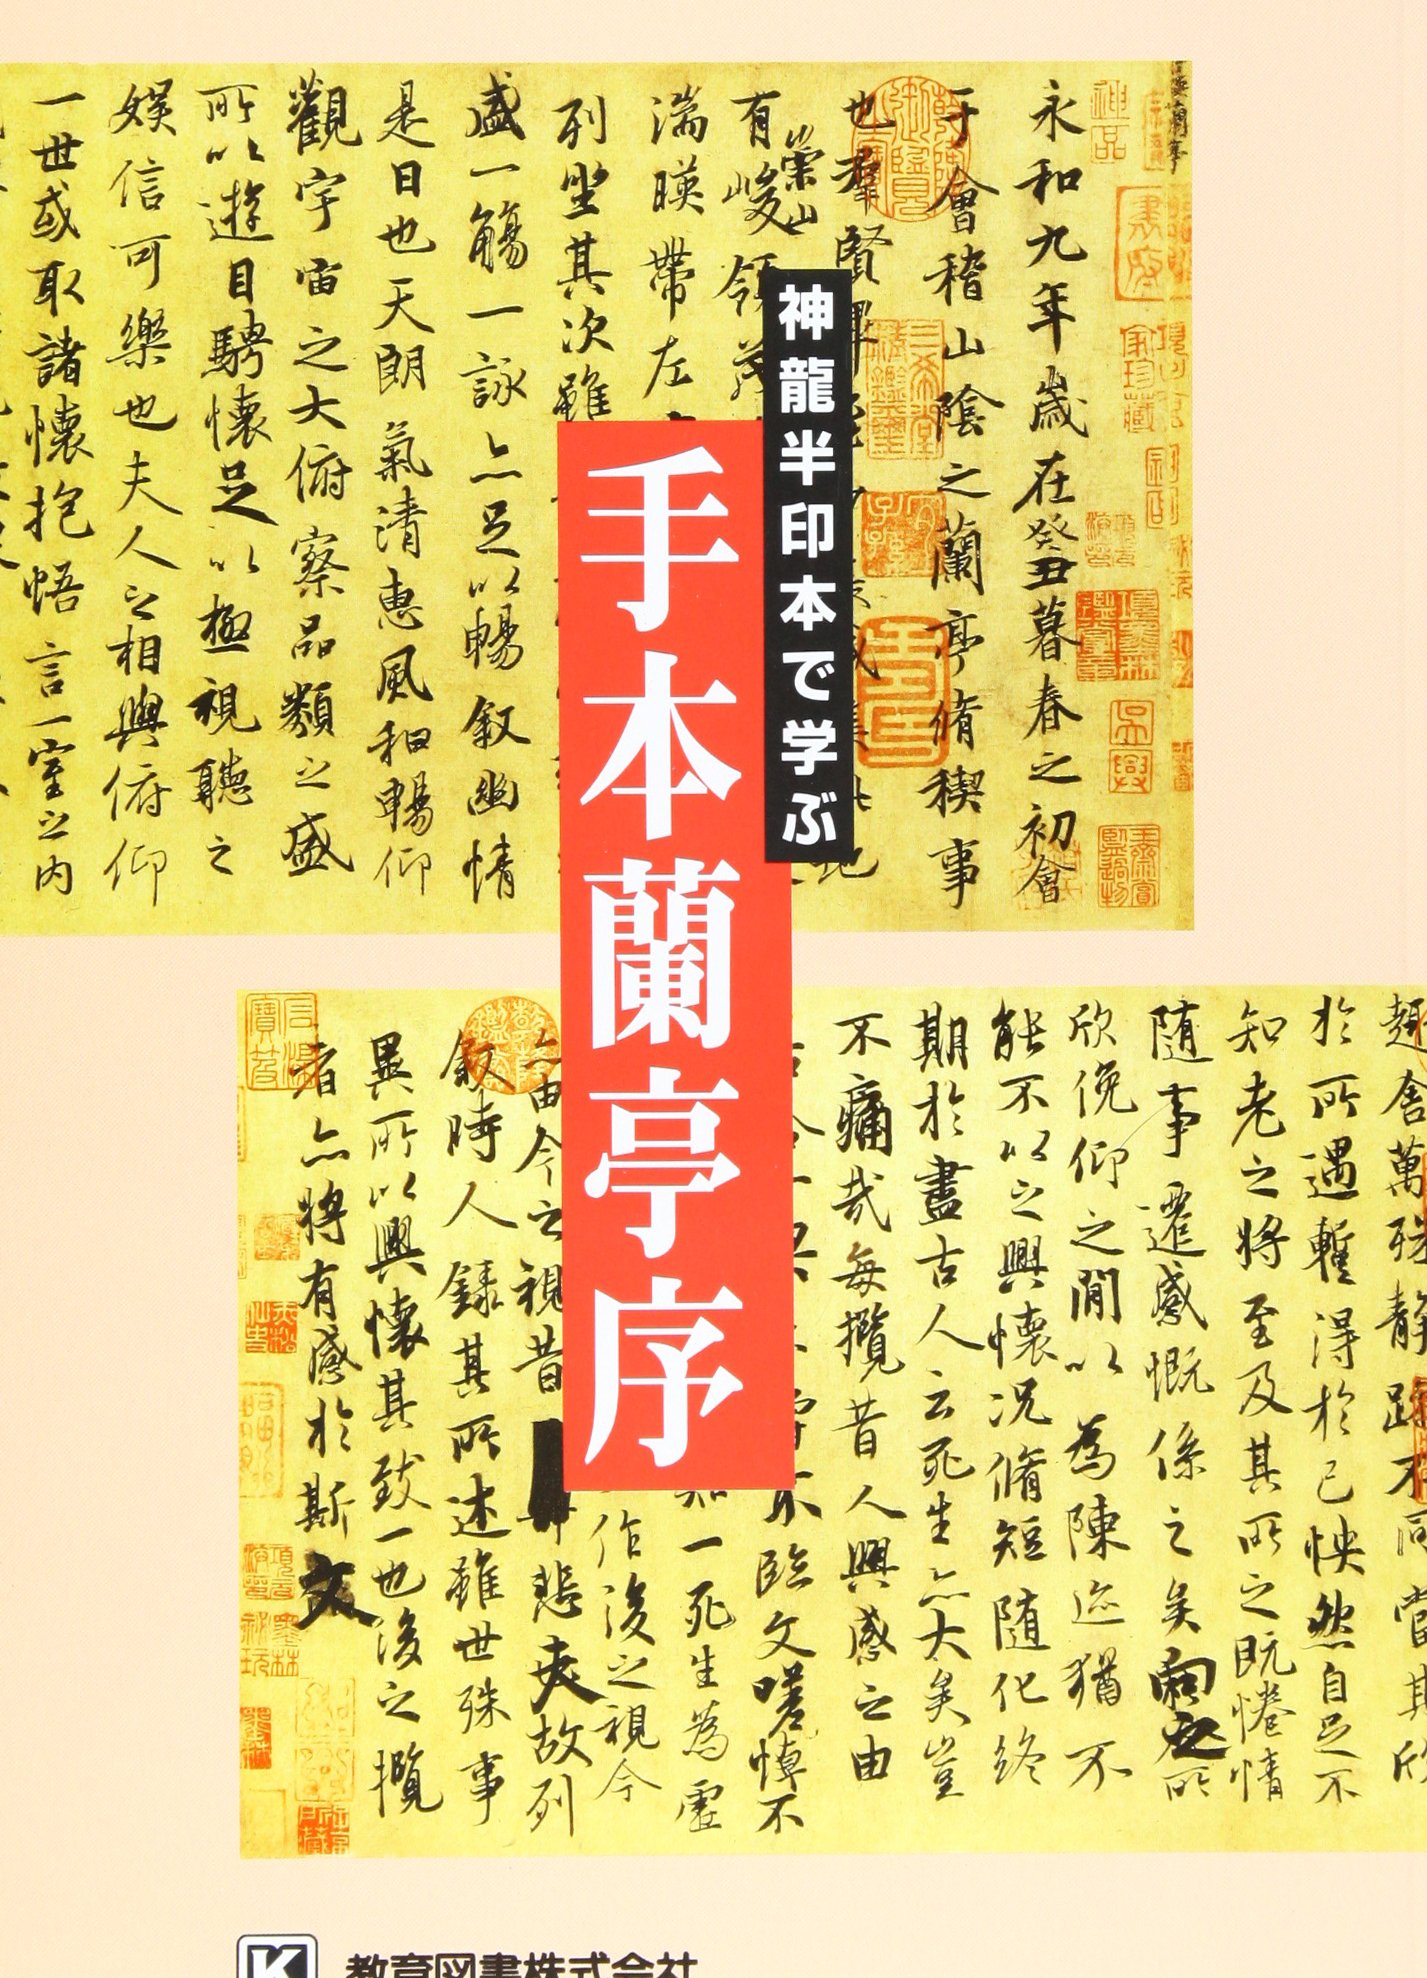 神龍半印本で学ぶ
手本蘭亭序
永和九年歳在癸丑暮春之初會
于會稽山陰之蘭亭脩稧事
也羣賢
有崇山峻領
湍暎帶左
列坐其次雖
盛一觴一詠亦足以暢叙幽情
是日也天朗氣清惠風和暢仰
觀宇宙之大俯察品類之盛
所以遊目騁懷足以極視聽之
娛信可樂也夫人之相與俯仰
一世或取諸懷抱悟言一室之內
趣舍萬殊静躁不同當其欣
於所遇暫得於己怏然自足不
知老之將至及其所之既惓情
隨事遷感慨係之矣向之所
欣俛仰之間以為陳迹猶不
能不以之興懷況脩短隨化終
期於盡古人云死生亦大矣豈
不痛哉每攬昔人興感之由
不臨文嗟悼不
知一死生為虛
作後之視今
由今之視昔悲夫故列
叙時人録其所述雖世殊事
異所以興懷其致一也後之攬
者亦將有感於斯文
教育図書株式会社